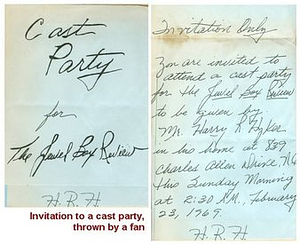 Cast
Party
for
The Jewel Box Review
H.R.H
Invitation to a cast party,
thrown by a fan
Invitation Only
You are invited to
attend a cast party
for the Jewel Box Review
to be given by
Mr. Harry R.
in his home at 839
Charles Allen Drive, N.E
this Sunday Morning
at 2:30 A.M., February
23, 1969.
H.R.H